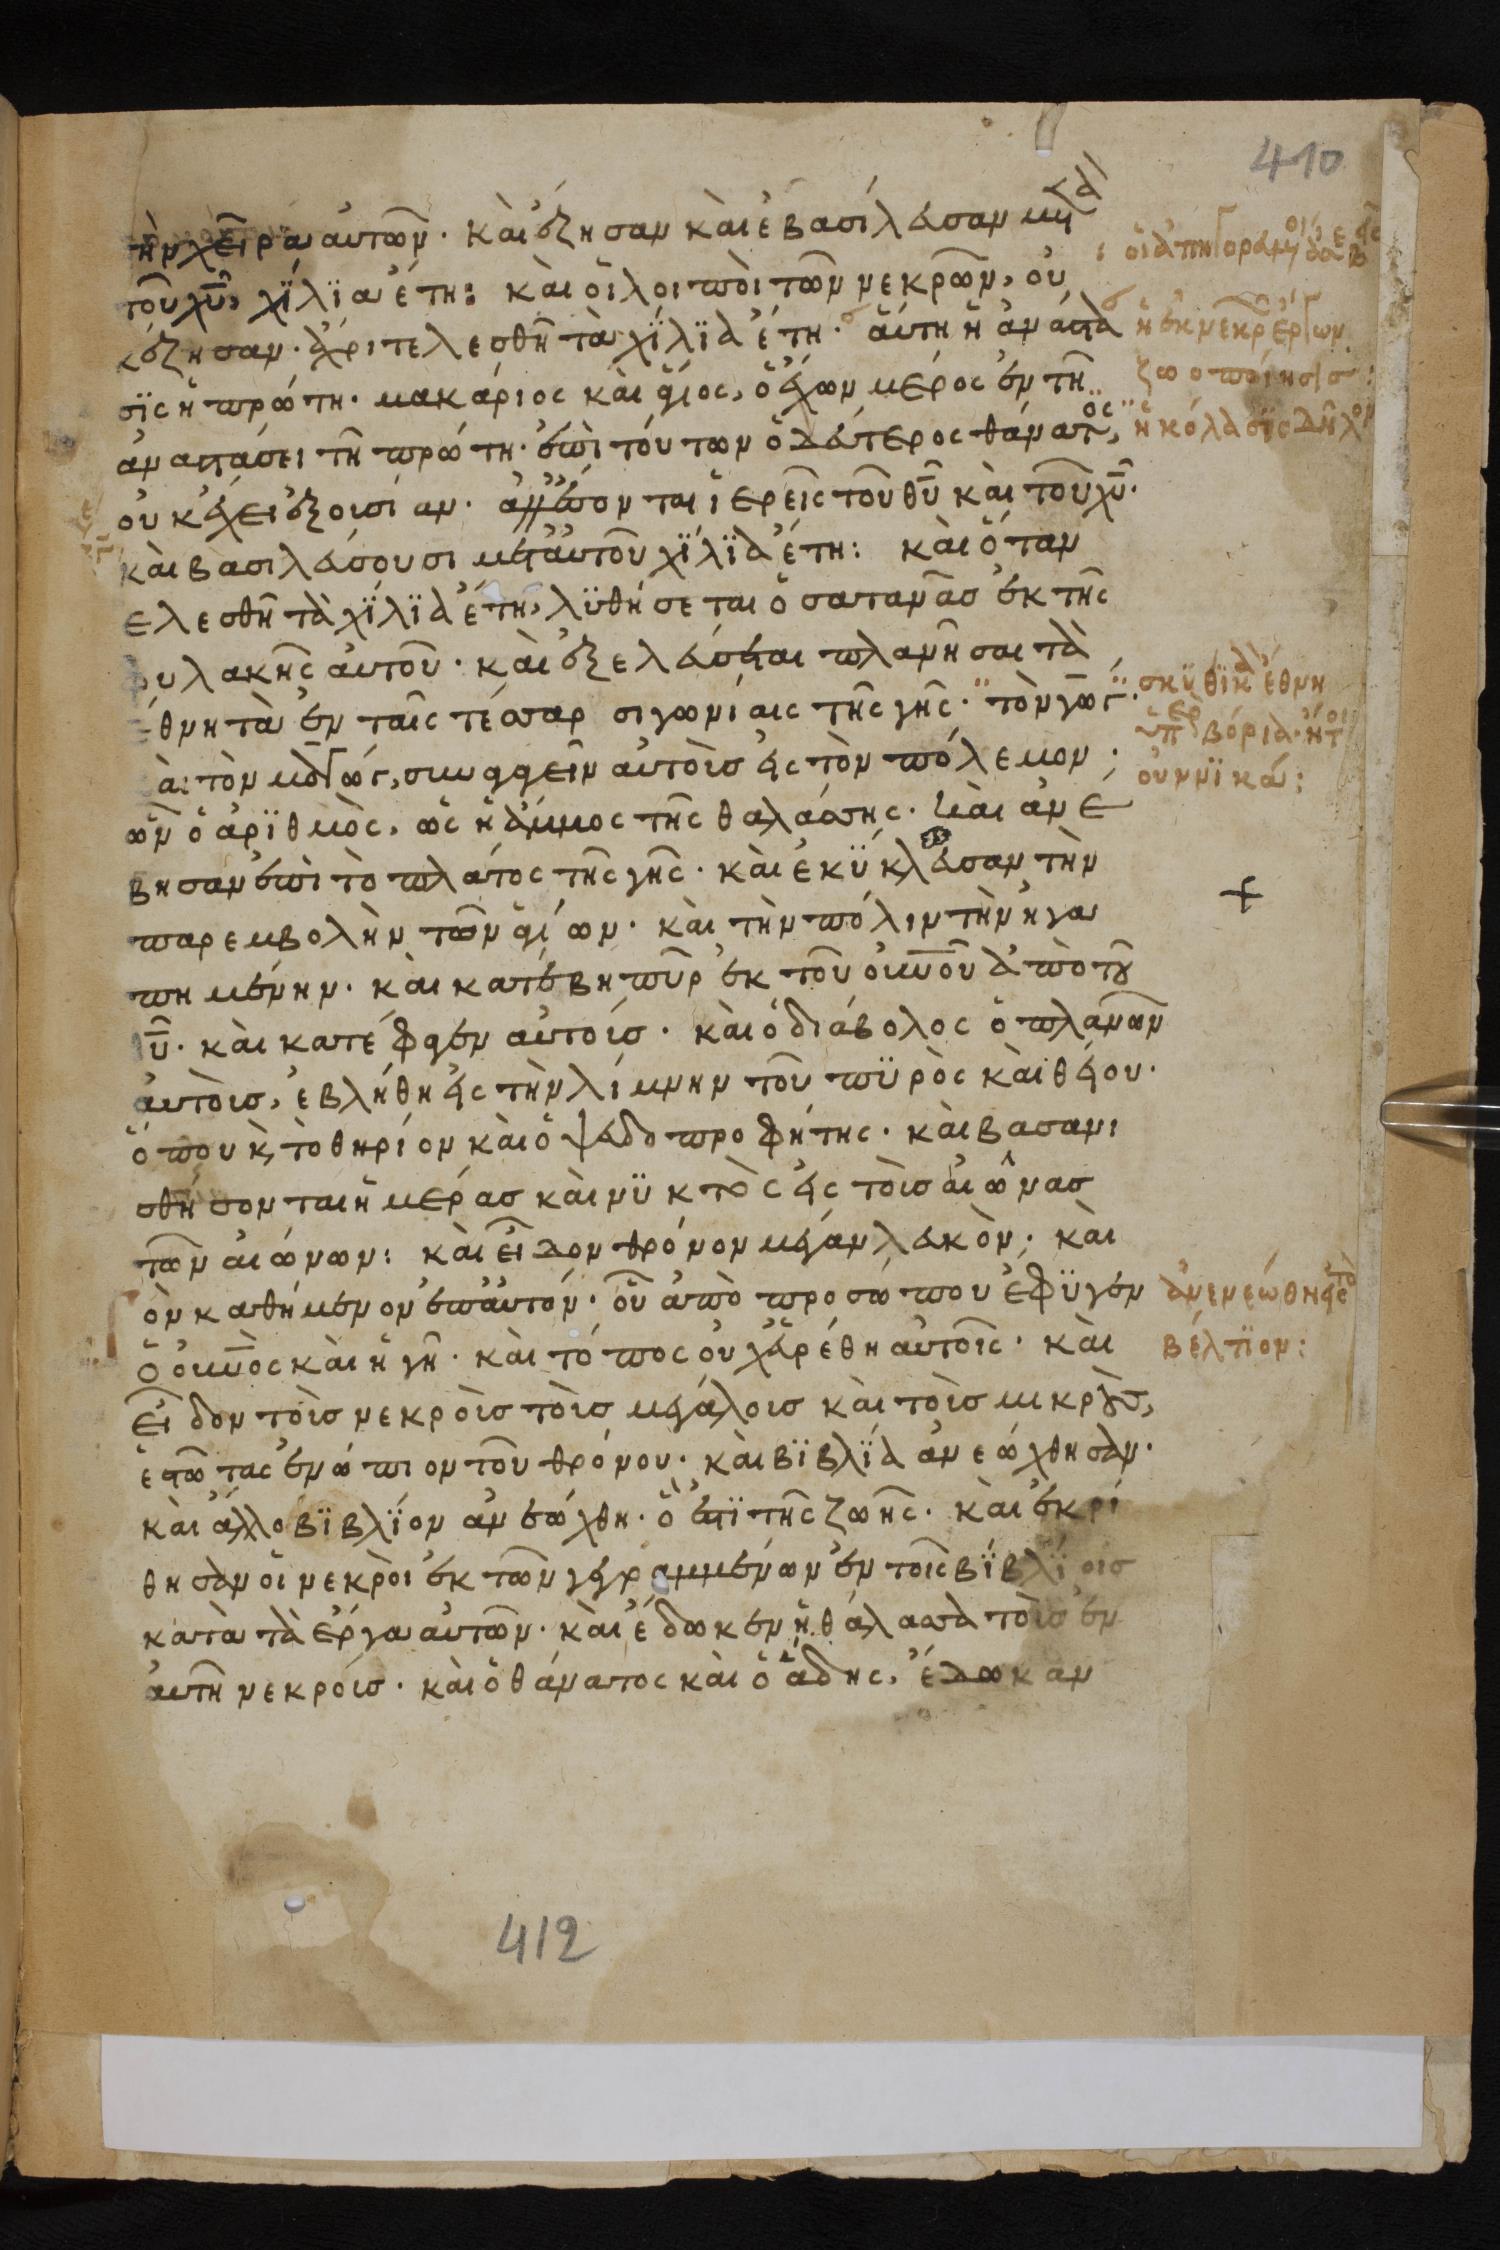 410
τὴν χεῖρα αὐτῶν· καὶ ἔζησαν καὶ ἐβασίλευσαν μετὰ
τοῦ χυ̅, χίλια ἔτη: καὶ οἱ λοιποὶ τῶν νεκρῶν, οὐ
κ ἔζησαν· ἄχρι τελεσθῆ τὰ χίλϊα ἔτη· αὕτη ἡ ἀνάστα
σϊς ἡ πρώτη· μακάριος καὶ ἅγιος, ὁ ἔχων μέρος ἐν τῆ
ἀναστάσει τῆ πρώτη· ἐπὶ τούτων ὁ δεύτερος θάνατος,
οὐκ ἔχει ἐξουσίαν· ἀλλ' ἔσονται ἱερεῖς τοῦ θυ̅ καὶ τοῦ χυ̅·
καὶ βασιλεύσουσι μετ' αὐτοῦ χίλϊα ἔτη: καὶ ὅταν
ελεσθῆ τὰ χίλϊα ἔτη, λϋθήσεται ὁ σατανᾶσ ἐκ τῆς
φυλακῆς αὐτοῦ· καὶ ἐξελεύσεται πλανῆσαι τὰ
ἔθνη τὰ ἐν ταῖς τέσσαρσι γωνίαις τῆς γῆς· τὸν γὼγ·
καὶ τὸν μαγώγ, συναγαγεῖν αὐτοὺσ εἰς τὸν πόλεμον·
ὧν ὁ ἀρϊθμὸς, ὡς ἡ ἄμμος τῆς θαλάσσης· καὶ ἀνε
βησαν ἐπὶ τὸ πλάτος τῆς γῆς· καὶ ἐκϋκλευσαν τὴν
παρεμβολὴν τῶν ἁγίων· καὶ τὴν πόλιν τὴν ἠγα
πημένην· καὶ κατέβη πῦρ ἐκ τοῦ οὐνοῦ ἀπὸ τοῦ
θυ̅· καὶ κατέφαγεν αὐτούσ· καὶ ὁ διάβολος ὁ πλανῶν
αὐτοὺσ, ἐβλήθη εἰς τὴν λίμνην τοῦ πϋρὸς καὶ θείου·
ὅπου κ, τὸ θηρίον καὶ ὁ ψευδοπροφήτης· καὶ βασανι
σθήσονται ἡμέρασ καὶ νϋκτὸς εἰς τοὺσ αἰῶνασ
τῶν αἰώνων: καὶ εἶδον θρόνον μέγαν λευκὸν· καὶ
ὸν καθήμενον ἐπ' αὐτόν· οὗ ἀπὸ προσώπου ἔφϋγεν
ὁ οὐνὸς καὶ ἡ γῆ· καὶ τόπος οὐχ εὑρέθη αὐτοῖς· καὶ
εἶδον τοὺσ νεκροὺσ τοὺσ μεγάλουσ καὶ τοὺσ μικροὺσ,
ἑστῶτας ἐνώπιον τοῦ θρόνου· καὶ βϊβλϊα ἀνεώχθησαν·
καὶ ἄλλο βϊβλϊον ἀνεώχθη· ὅ ἐστϊ τῆς ζωῆς· καὶ ἐκρί
θησαν οἱ νεκροὶ ἐκ τῶν γεγραμμένων ἐν τοῖς βϊβλϊοισ
κατὰ τὰ ἔργα αὐτῶν· καὶ ἔδωκεν ἡ θάλασσα τοὺσ ἐν
αὐτῆ νεκρούσ· καὶ ὁ θάνατος καὶ ὁ ἅδης, ἔδωκαν
ἡ ἐκ νεκρ ἔργων
ζωοποίησισ:
ἡ κόλασϊς δηλον
σκϋθϊκὰ ἔθνη
ὑπερβόρια· ἤτοι
οὐννϊκά:
ἀνενεώθη εἰς τὸ
βέλτϊον:
412